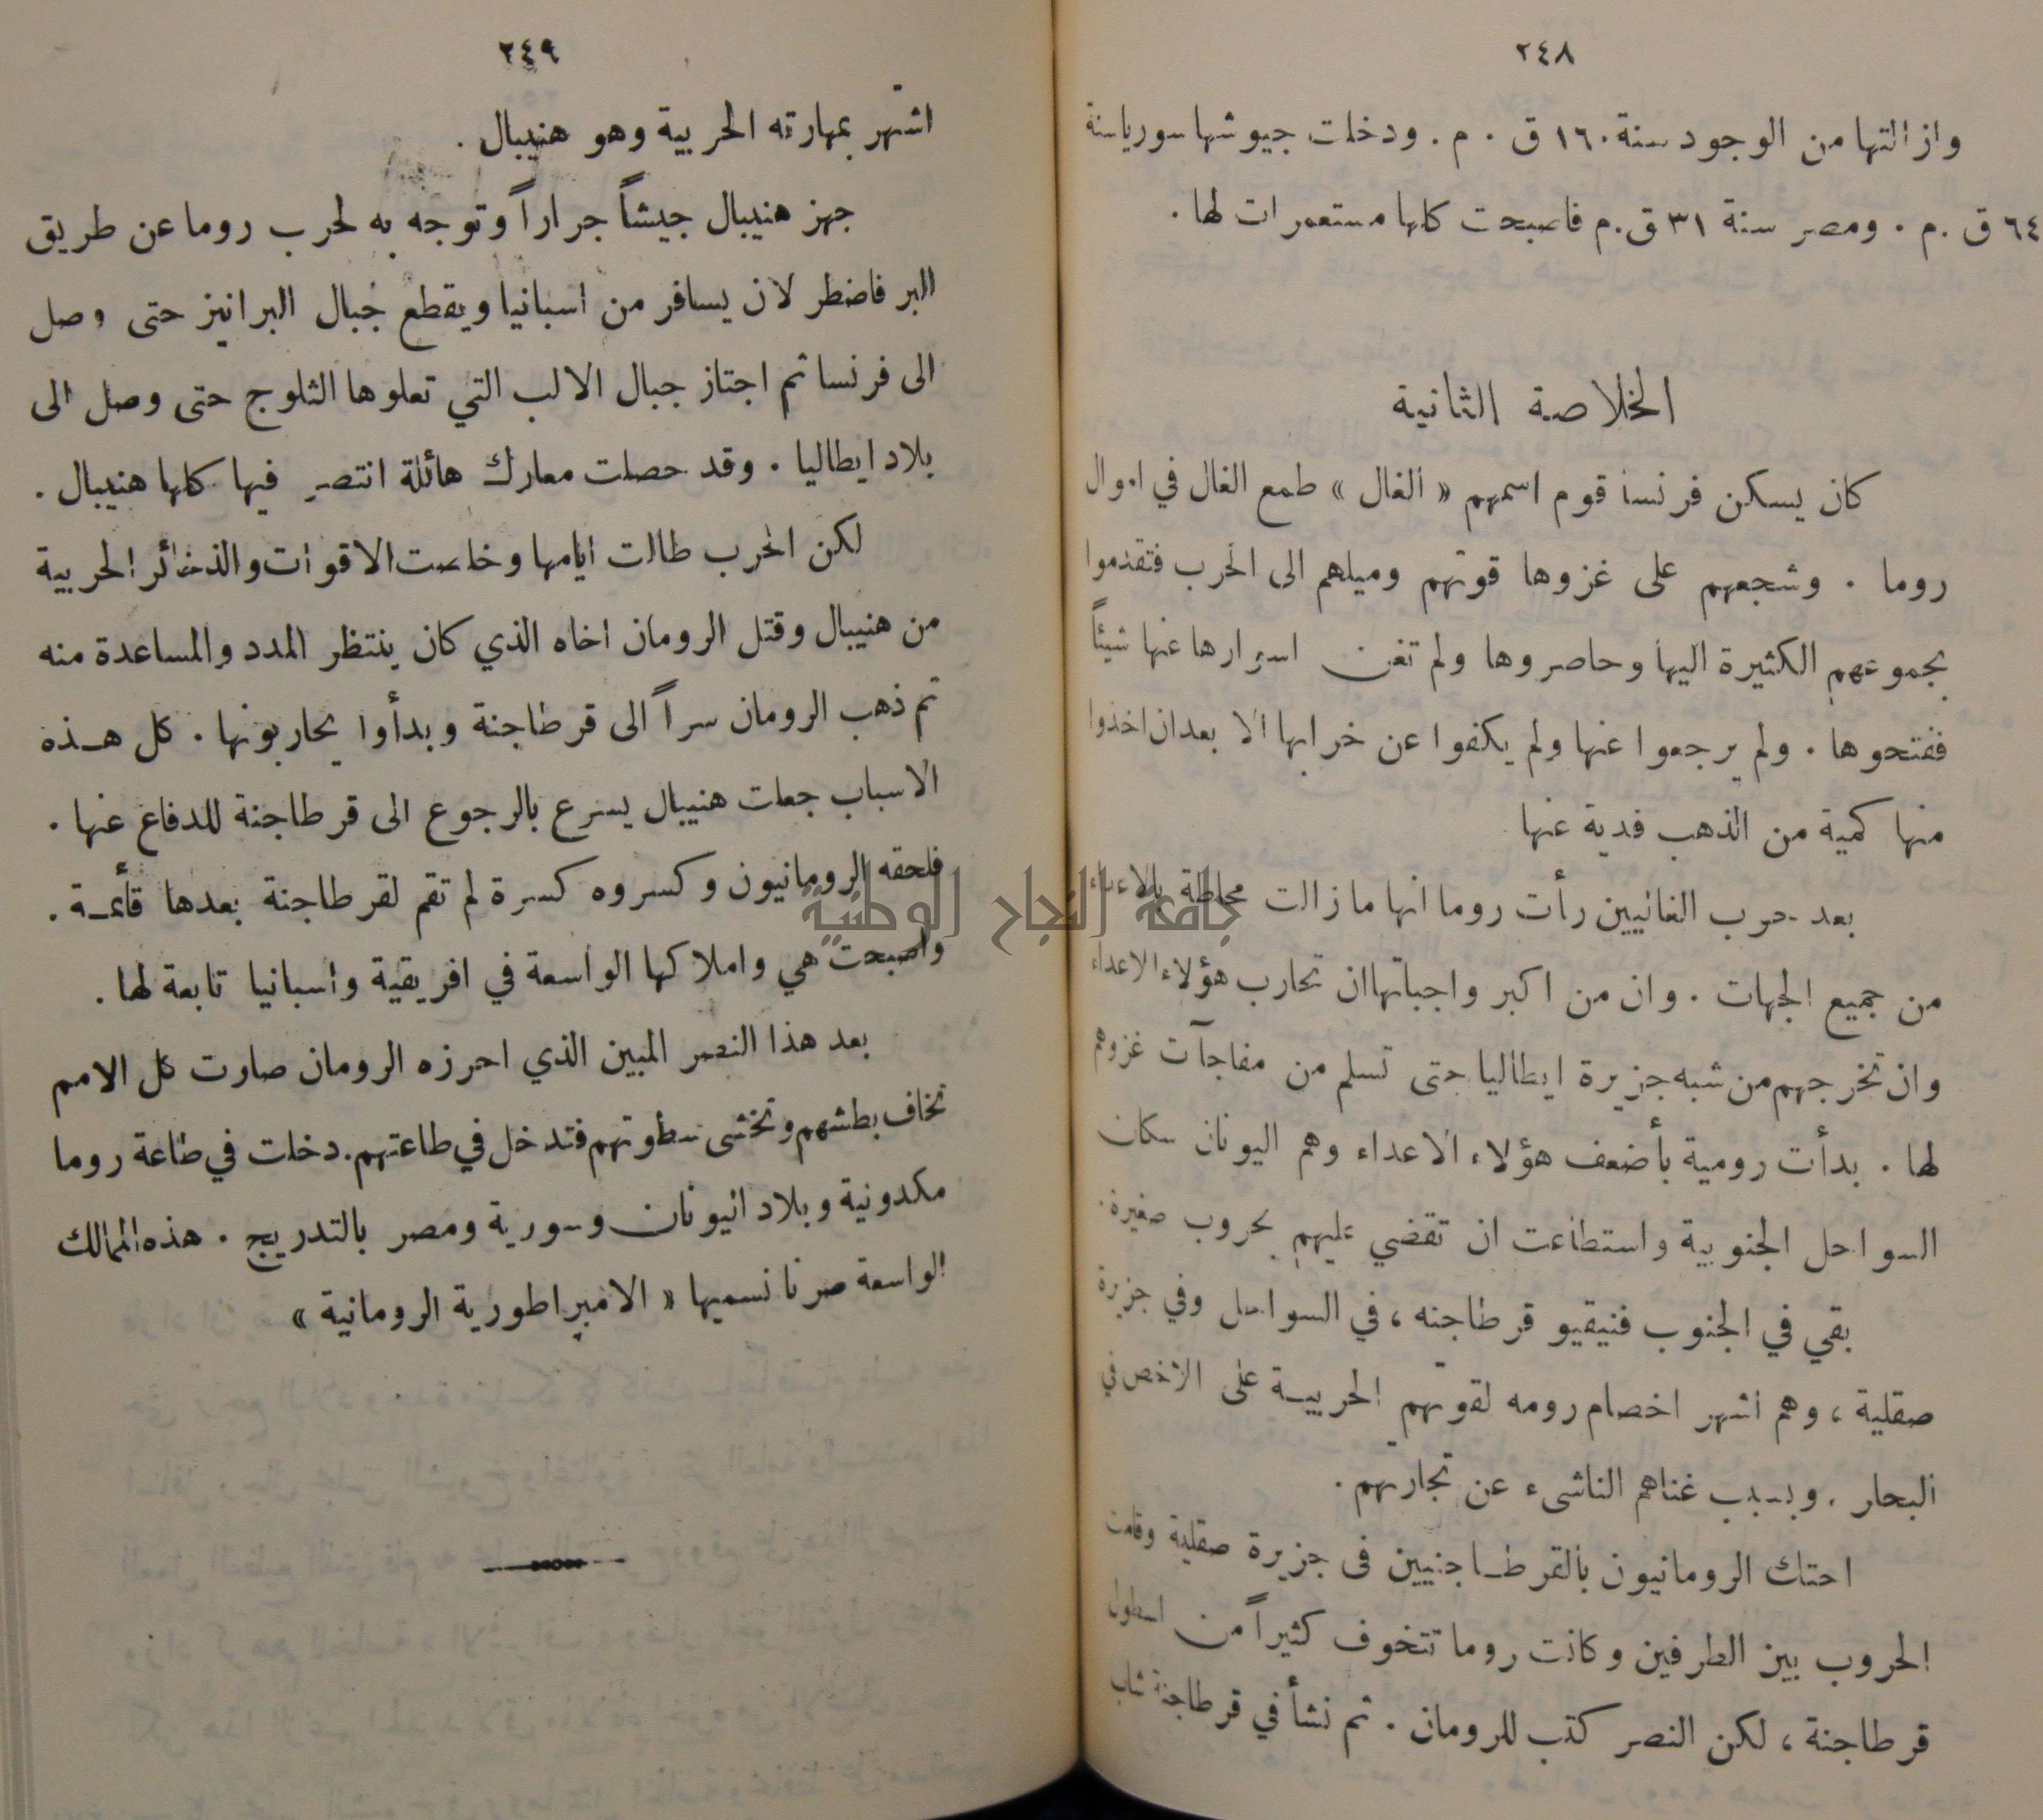 ٢٤٨
وازالتها من الوجود سنة ١٦٠ ق . م . ودخلت جيوشها سوريا سنة
٦٤ ق .م . ومصر سنة ٣١ ق.م فاصبحت كلها مستعمرات لها .
الخلاصة الثانية
كان يسكن فرنسا قوم اسمهم « الغال » طمع الغال في اموال
روما . وشجعهم على غزوها قوتهم وميلهم الى الحرب فتقدموا
بجموعهم الكثيرة اليها وحاصروها ولم تغن اسوارها عنها شيئاً
ففتحوها . ولم يرجعوا عنها ولم يكفوا عن خرابها الا بعد ان اخذوا
منها كمية من الذهب فدية عنها
بعد حرب الغاليين رأت روما انها ما زالت محاطة بالاعداء
من جميع الجهات . وان من اكبر واجباتها ان تحارب هؤلاء الاعداء
وان تخرجهم من شبه جزيرة ايطاليا حتى تسلم من مفاجآت غزوهم
لها . بدأت رومية بأضعف هؤلاء الاعداء وهم اليونان سكان
السواحل الجنوبية واستطاعت ان تقضي عليهم بحروب صغيرة .
بقي في الجنوب فنيقيو قرطاجنه ، في السواحل وفي جزيرة
صقلية ، وهم اشهر اخصام رومه لقوتهم الحربيـة على الاخص في
البحار . وبسبب غناهم الناشىء عن تجارتهم .
احتك الرومانيون بالقرطـاجنيين فى جزيرة صقلية وقامت
الحروب بين الطرفين وكانت روما تتخوف كثيراً من اسطول
قرطاجنة ، لكن النصر كتب للرومان . ثم نشأ في قرطاجنة شاب
٢٤٩
اشتهر بمهارته الحربية وهو هنيبال .
جهز هنيبال جيشاً جراراً وتوجه به لحرب روما عن طريق
البر فاضطر لان يسافر من اسبانيا ويقطع جبال البرانيز حتى وصل
الى فرنسا ثم اجتاز جبال الالب التي تعلوها الثلوج حتى وصل الى
بلاد ايطاليا . وقد حصلت معارك هائلة انتصر فيها كلها هنيبال .
لكن الحرب طالت ايامها وخلصت الاقوات والذخائر الحربية
من هنيبال وقتل الرومان اخاه الذي كان ينتظر المدد والمساعدة منه
ثم ذهب الرومان سراً الى قرطاجنة وبدأوا يحاربونها . كل هـذه
الاسباب جعلت هنيبال يسرع بالرجوع الى قرطاجنة للدفاع عنها .
فلحقه الرومانيون وكسروه كسرة لم تقم لقرطاجنة بعدها قأئمـة .
واصبحت هي واملاكها الواسعة في افريقية واسبانيا تابعة لها .
بعد هذا النصر المبين الذي احرزه الرومان صارت كل الامم
تخاف بطشهم وتخشى سطوتهم فتدخل في طاعتهم . دخلت في طاعة روما
مكدونية وبلاد اليونان وسورية ومصر بالتدريج . هذه الممالك
الواسعة صرنا نسميها « الامبراطورية الرومانية »
جامعة النجاح الوطنية